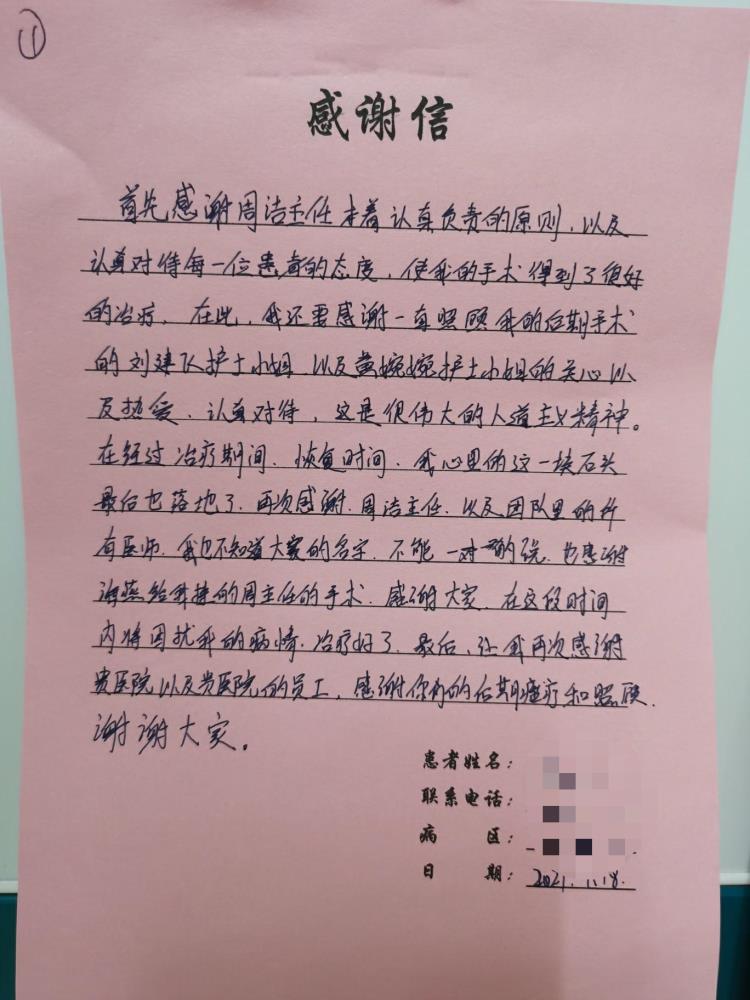 ①
感谢信
首先感谢周洁主任本着认真负责的原则，以及
认真对待每一位患者的态度，使我的手术得到了很好
的治疗。在此，我还要感谢一直照顾我的后期手术
的刘建队护士小姐、以及黄婉婉护士小姐的关心以
及热爱、认真对待，这是很伟大的人道主义精神。
在经过治疗期间、恢复时间、我心里的这一块石头
最后也落地了、再次感谢、周洁主任、以及团队里的所
有医师、我也不知道大家的名字、不能一对一的说、也感谢
海燕给我挂的周主任的手术、感谢大家、在这段时间
内将困扰我的病情、治疗好了、最后、让我再次感谢
贵医院以及贵医院的员工，感谢你们的后期治疗和照顾、
谢谢大家。
患者姓名：
联系电话：
病 区：
日 期：2021.1.18.